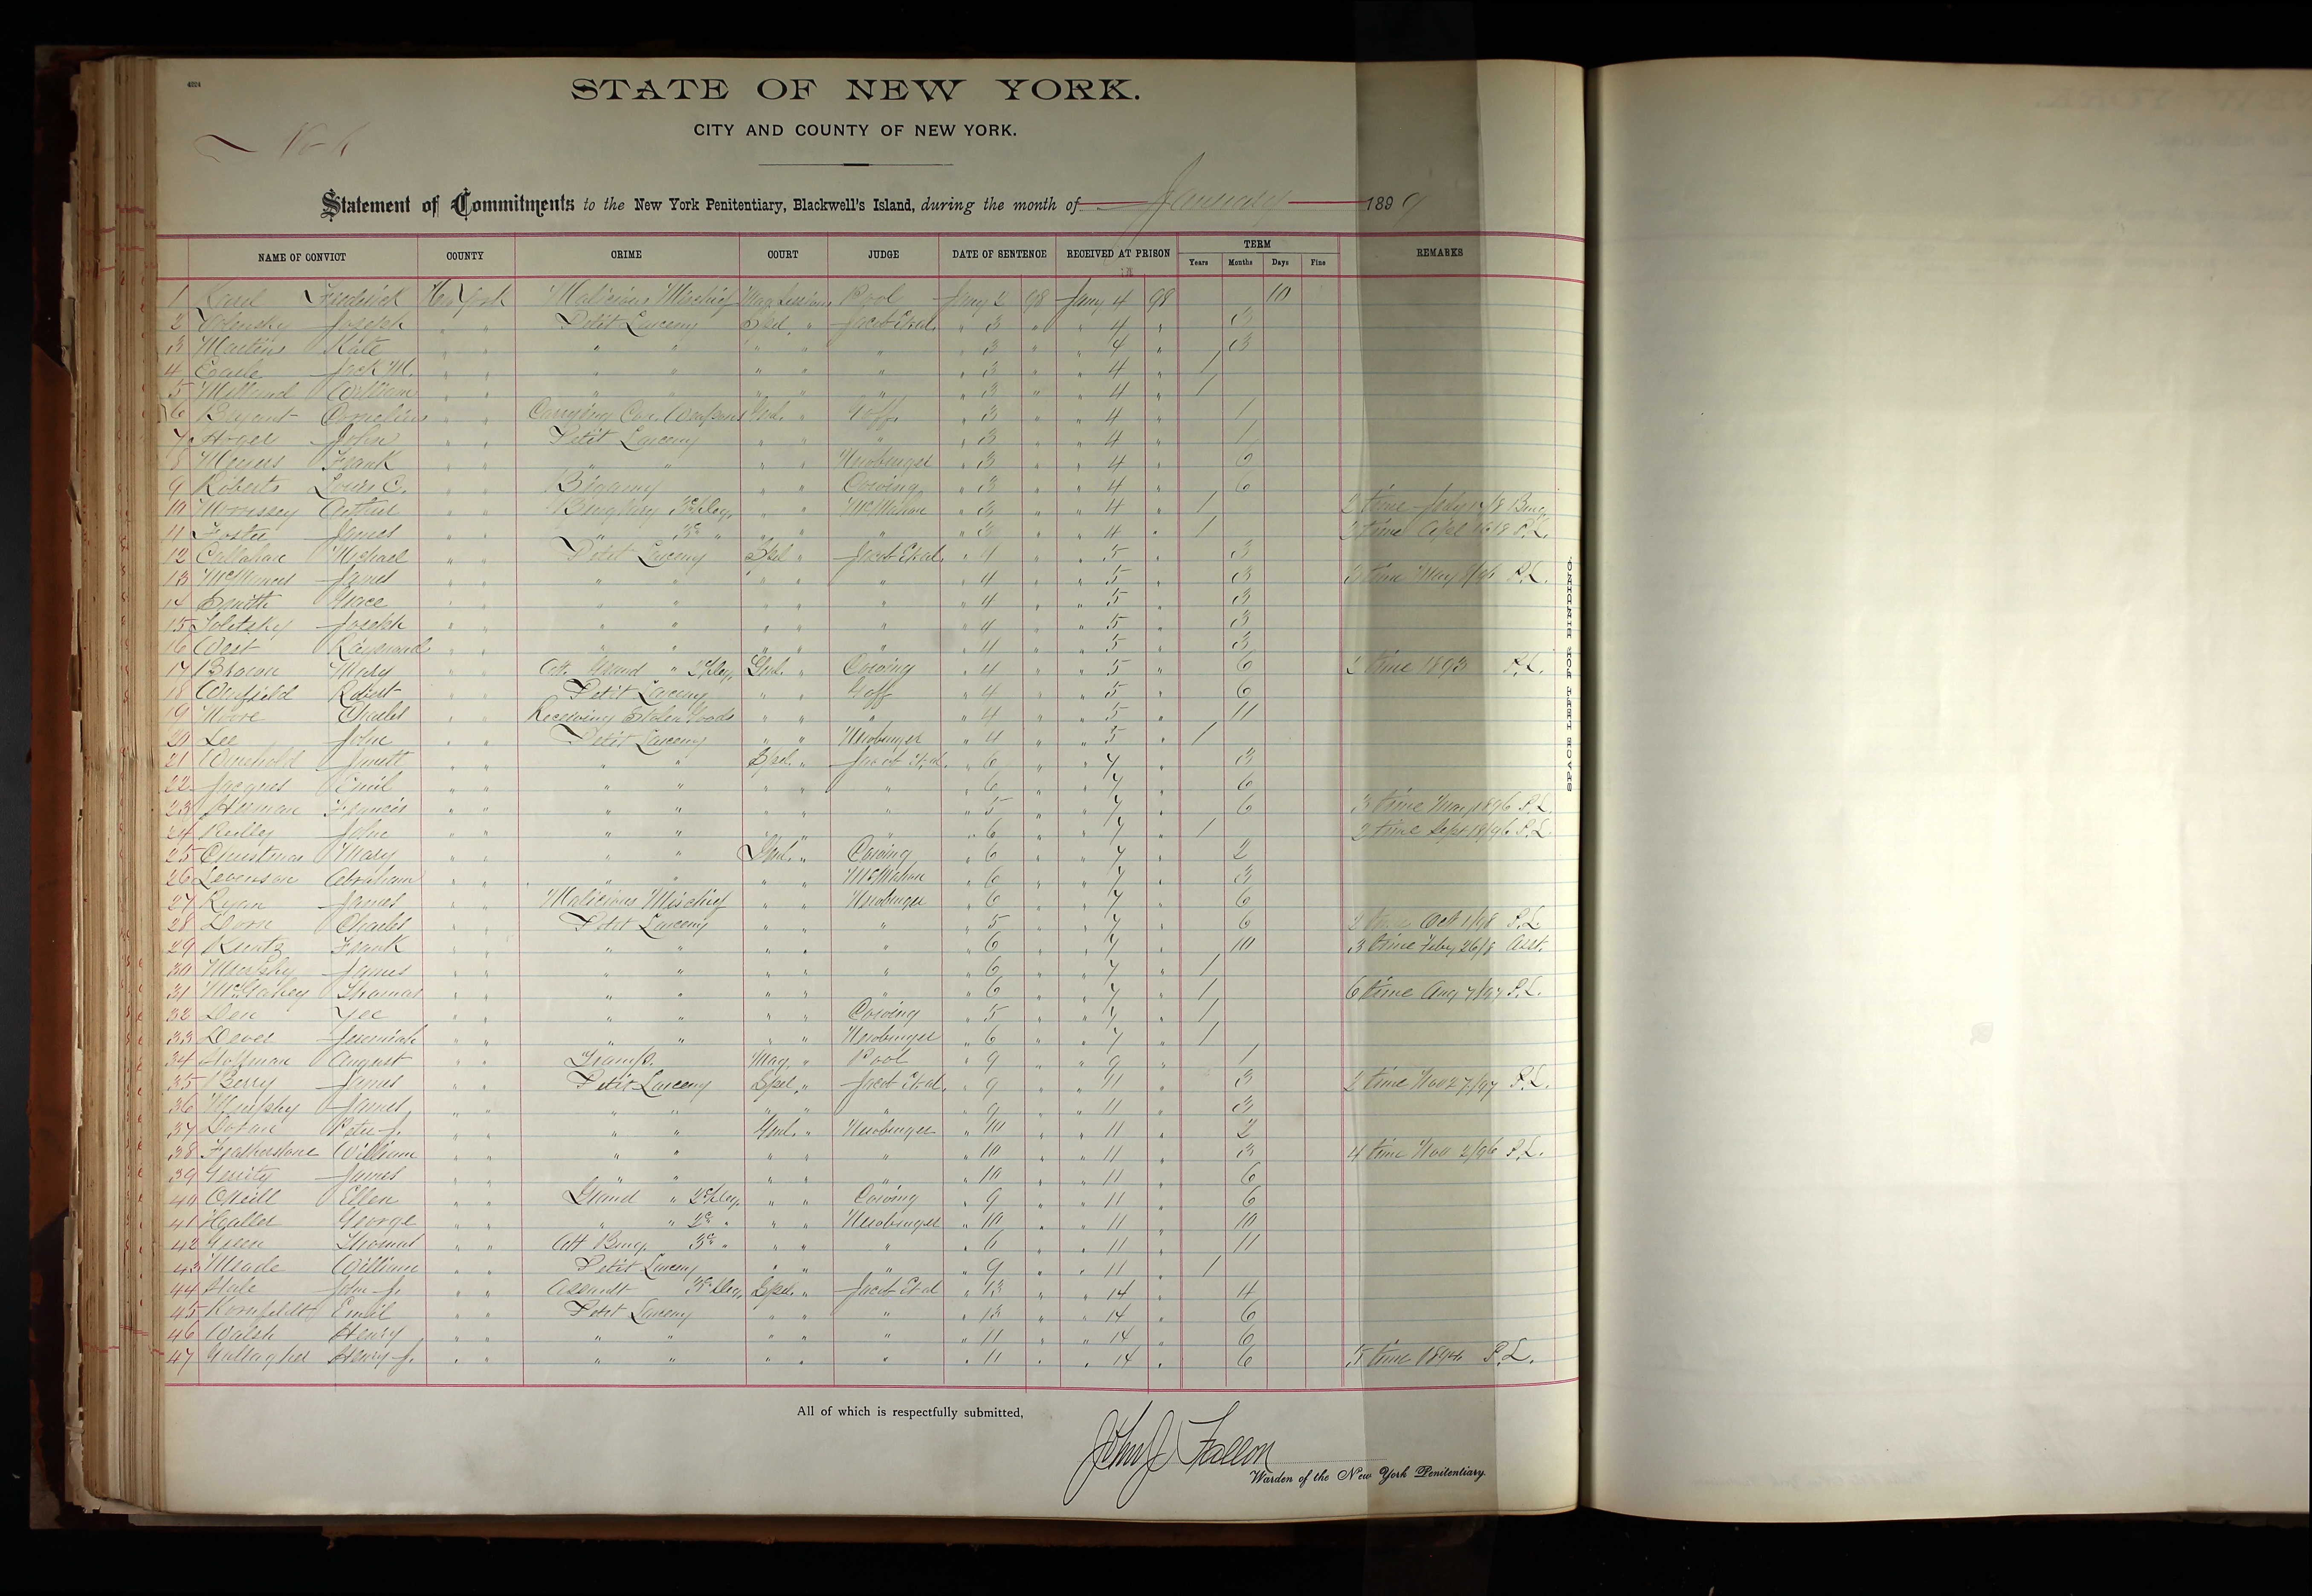 4024
STATE OF NEW YORK.
CITY AND COUNTY OF NEW YORK.
Statement of Commitments to the New York Penitentiary, Blackwell's Island, during the month of January 1899
NAME OF CONVICT COUNTY CRIME COURT JUDGE DATE OF SENTENCE RECEIVED AT PRISON TERM REMARKS
Years Months Days Fine
1 Frederick New York Malicious Mischief Pool Jany 98 Jany 4 98 10
2 Joseph " " Petit Larceny Spel " Jacob Et al. " 3 " " 4 " 3
3 Martins Kate " " " " " " " " 3 " " 4 " 3
4 Jack M. " " " " " " " " 3 " " 4 " 1
5 William " " " " " " " " 3 " " 4 " 1
6 Bryant Cornelius " " Carrying Con. Weapons Genl. " Goff. " 3 " " 4 " 1
7 John " " Petit Larceny " " " " 3 " " 4 " 1
8 Meyers Frank " " " " " " Newburger " 3 " " 4 " 6
9 Roberts Louis C. " " Bigamy " " Cowing " 3 " " 4 " 6
10 Morrissey Arthur " " Burglary 3d Deg. " " McMahon " 3 " " 4 " 1 2 time
11 Foster James " " " 3d " " " " " 3 " " 4 " 1 2 time P.L.
12 Callahan Michael " " Petit Larceny Spel " Jacob Et al. " 4 " " 5 " 3
13 James " " " " " " " " 4 " " 5 " 3 3 time May P.L.
14 Smith Grace " " " " " " " " 4 " " 5 " 3
15 Joseph " " " " " " " " 4 " " 5 " 3
16 West Raymond " " " " " " " " 4 " " 5 " 3
17 Brown Mary " " Att. Grand " 2d Deg. Genl. " Cowing " 4 " " 5 " 6 2 time 1893 P.L.
18 Robert " " Petit Larceny " " Goff " 4 " " 5 " 6
19 Moore Charles " " Receiving Stolen Goods " " " " 4 " " 5 " 11
20 Lee John " " Petit Larceny " " Newburger " 4 " " 5 " 1
21 " " " " Spel. " Jacob Et al. " 6 " " 7 " 3
22 Jacques Emil " " " " " " " " 6 " " 7 " 6
23 Herman Francis " " " " " " " " 5 " " 7 " 6 3 time May 1896 P.L.
24 Reilley John " " " " " " " " 6 " " 7 " 1 2 time Sept 18/96 P.L.
25 Christman Mary " " " " Genl. " Cowing " 6 " " 7 " 2
26 Levenson Abraham " " " " " " McMahon " 6 " " 7 " 3
27 Ryan James " " Malicious Mischief " " Newburger " 6 " " 7 " 6
28 Dorn Charles " " Petit Larceny " " " " 5 " " 7 " 6 2 time Oct 1/98 P.L.
29 Kuntz Frank " " " " " " " " 6 " " 7 " 10 3 time Feby 26/8 Asst.
30 Murphy James " " " " " " " " 6 " " 7 " 1
31 McGahey Thomas " " " " " " " " 6 " " 7 " 1 6 time Aug 7/97 P.L.
32 Den Yee " " " " " " Cowing " 5 " " 7 " 1
33 Jeremiah " " " " " " Newburger " 6 " " 7 " 1
34 Hoffman August " " Tramp. Mag. " Pool " 9 " " 9 " 1
35 Berry James " " Petit Larceny Spel " Jacob Et al. " 9 " " 11 " 3 2 time Nov 27/97 P.L.
36 Murphy James " " " " " " " " 9 " " 11 " 3
37 Dolan Peter J. " " " " Genl. " Newburger " 10 " " 11 " 2
38 Featherstone William " " " " " " " " 10 " " 11 " 3 4 time Nov 2/96 P.L.
39 Gerrity James " " " " " " " " 10 " " 11 " 6
40 O'Neill Ellen " " Grand " 2d Deg. " " Cowing " 9 " " 11 " 6
41 Haller George " " " " 2d " " " Newburger " 10 " " 11 " 10
42 Green Thomas " " Att Burg. 3d " " " " " 6 " " 11 " 11
43 Meade William " " Petit Larceny " " " " 9 " " 11 " 1
44 Hale John J. " " Assault 3d Deg. Spel. " Jacob Et al " 13 " " 14 " 4
45 Kornfeldt Emil " " Petit Larceny " " " " 13 " " 14 " 6
46 Walsh Henry " " " " " " " " 11 " " 14 " 6
47 Gallagher Henry J. " " " " " " " " 11 " " 14 " 6 5 time P.L.
SPACE FOR TRIAL BINDING.
All of which is respectfully submitted,
John J. Fallon
Warden of the New York Penitentiary.